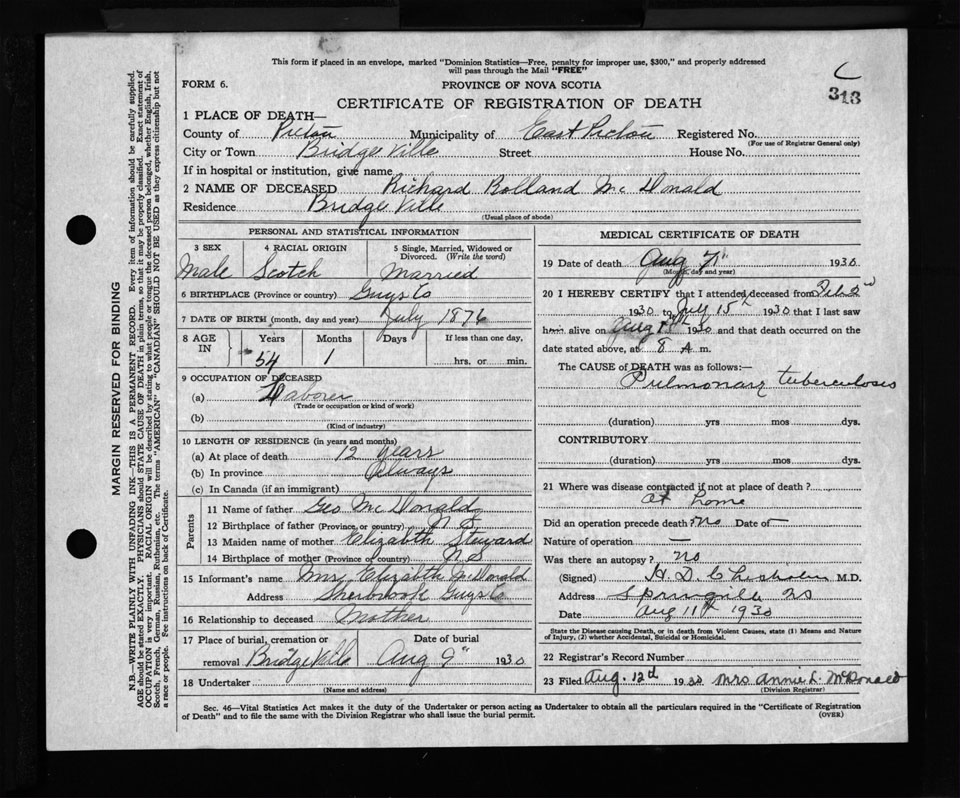 This form if placed in an envelope, marked "Dominion Statistics—Free, penalty for improper use, $300," and properly addressed
will pass through the Mail "FREE"
FORM 6.
PROVINCE OF NOVA SCOTIA
313
CERTIFICATE OF REGISTRATION OF DEATH
1 PLACE OF DEATH—
County of Pictou Municipality of East Pictou Registered No.
(For use of Registrar General only)
City or Town Bridge Ville Street House No.
If in hospital or institution, give name
2 NAME OF DECEASED Richard Rolland McDonald
Residence Bridge Ville
(Usual place of abode)
PERSONAL AND STATISTICAL INFORMATION
3 SEX 4 RACIAL ORIGIN 5 Single, Married, Widowed or
Divorced. (Write the word)
Male Scotch Married
6 BIRTHPLACE (Province or country) Guys Co
7 DATE OF BIRTH (month, day and year) July 1876
8 AGE IN Years Months Days If less than one day,
54 1 hrs. or min.
9 OCCUPATION OF DECEASED
(a) Laborer
(Trade or occupation or kind of work)
(b)
(Kind of industry)
10 LENGTH OF RESIDENCE (in years and months)
(a) At place of death 12 years
(b) In province Always
(c) In Canada (if an immigrant)
Parents
11 Name of father Geo McDonald
12 Birthplace of father (Province or country) N S
13 Maiden name of mother Elizabeth Steward
14 Birthplace of mother (Province or country) N S
15 Informant's name Mrs Elizabeth McDonald
Address Sherbrook Guys Co
16 Relationship to deceased Mother
17 Place of burial, cremation or Date of burial
removal BridgeVille Aug 9th 1930
18 Undertaker
(Name and address)
MEDICAL CERTIFICATE OF DEATH
19 Date of death Aug 7th 1930.
(Month, day and year)
20 I HEREBY CERTIFY that I attended deceased from Feb 2nd
1930 to July 15th 1930 that I last saw
him alive on Aug 1930 and that death occurred on the
date stated above, at 8 A m.
The CAUSE of DEATH was as follows:—
Pulmonary tuberculosis
(duration) yrs mos dys.
CONTRIBUTORY
(duration) yrs. mos. dys.
21 Where was disease contracted if not at place of death?
at home
Did an operation precede death? No Date of —
Nature of operation —
Was there an autopsy? No
(Signed) H. D. Chisholm M.D.
Address Springville NS
Date Aug 11th 1930
State the Disease causing Death, or in death from Violent Causes, state (1) Means and Nature
of Injury, (2) whether Accidental, Suicidal or Homicidal.
22 Registrar's Record Number
23 Filed Aug. 12th 1930 Mrs Annie L. McDonald
(Division Registrar)
Sec. 46—Vital Statistics Act makes it the duty of the Undertaker or person acting as Undertaker to obtain all the particulars required in the "Certificate of Registration
of Death" and to file the same with the Division Registrar who shall issue the burial permit.
(OVER)
MARGIN RESERVED FOR BINDING
N.B.—WRITE PLAINLY WITH UNFADING INK—THIS IS A PERMANENT RECORD. Every item of information should be carefully supplied.
AGE should be stated EXACTLY. PHYSICIANS should STATE CAUSE OF DEATH in plain terms, so that it may be properly classified. Exact statement of
OCCUPATION is very important. RACIAL ORIGIN will be described by stating to what people or tongue the deceased person belonged, whether English, Irish,
Scotch, French, German, Russian, Ruthenian, etc. The terms "AMERICAN" or "CANADIAN" SHOULD NOT BE USED as they express citizenship but not
a race or people. See instructions on back of Certificate.